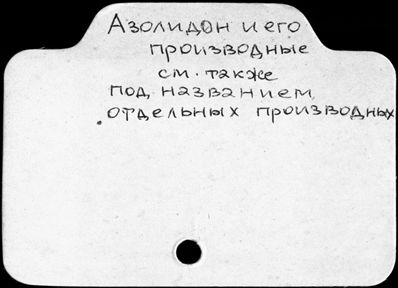 Азолидон и его
производные
см. также
под названием
отдельных производных